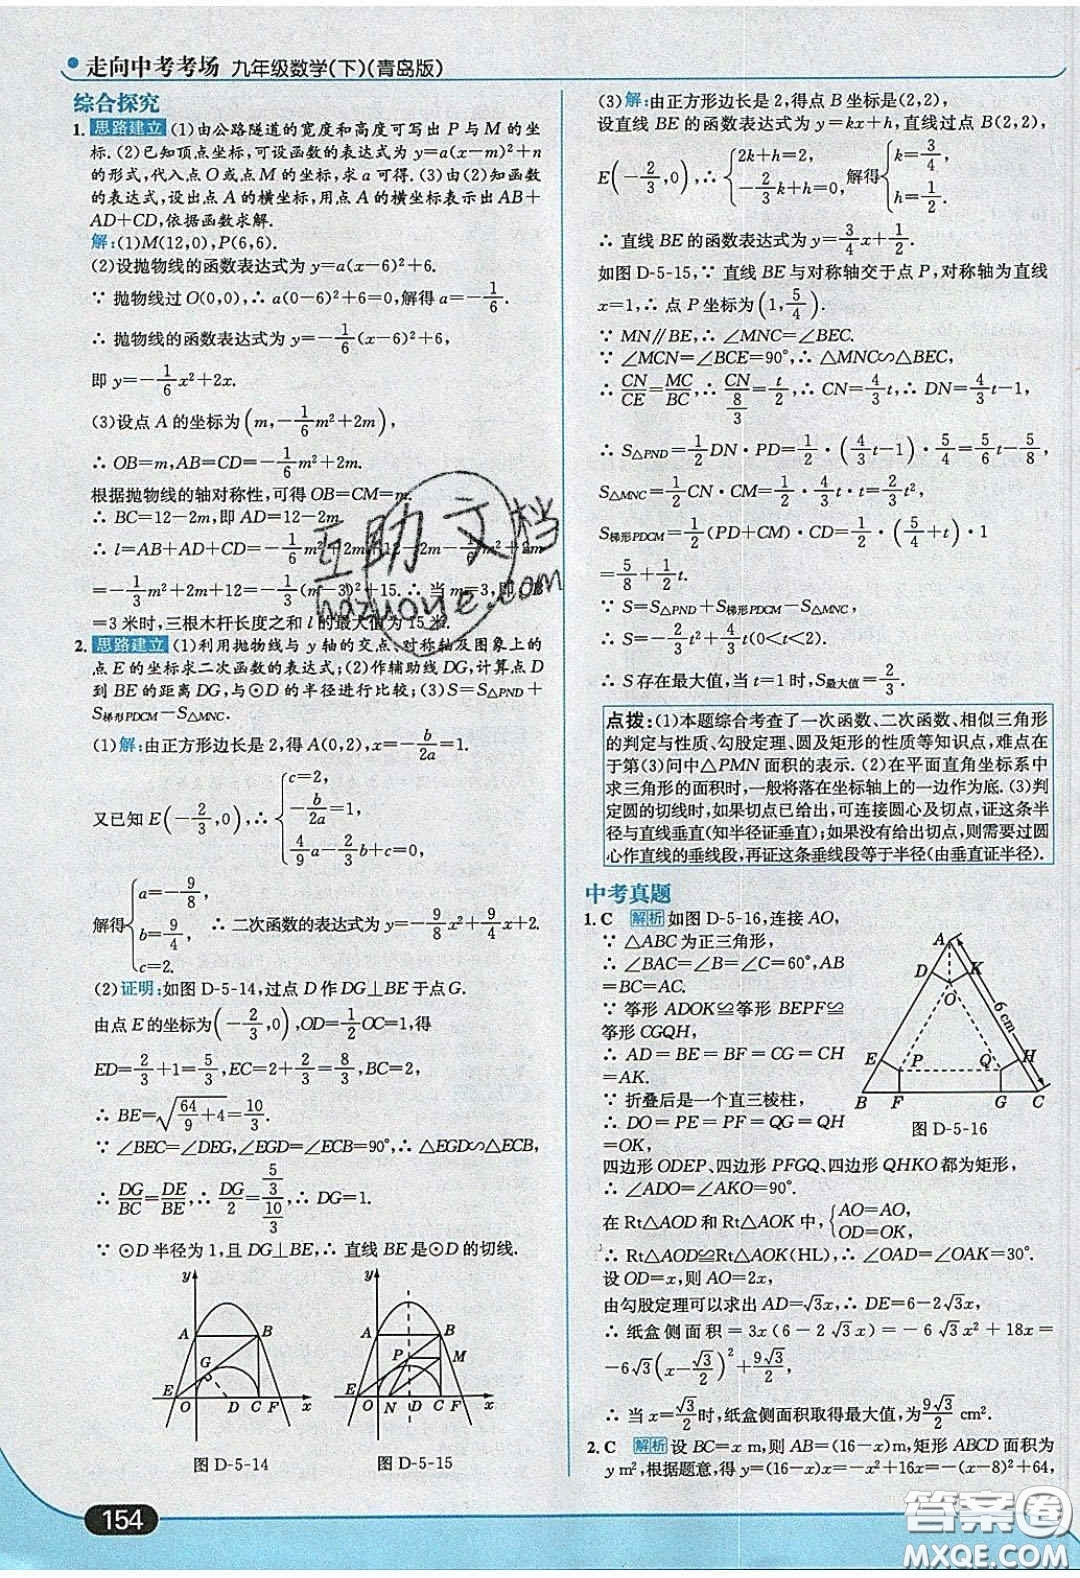 走向中考考场 九年级数学(下)(青岛版)
综合探究
1. 思路建立 (1)由公路隧道的宽度和高度可写出 P 与 M 的坐
标.(2)已知顶点坐标,可设函数的表达式为 y=a(x-m)²+n
的形式,代入点 O 或点 M 的坐标,求 a 可得.(3)由(2)知函数
的表达式,设出点 A 的横坐标,用点 A 的横坐标表示出 AB+
AD+CD,依据函数求解.
解:(1)M(12,0),P(6,6).
(2)设抛物线的函数表达式为 y=a(x-6)²+6.
∵ 抛物线过 O(0,0),∴ a(0-6)²+6=0,解得 a=-1/6.
∴ 抛物线的函数表达式为 y=-1/6(x-6)²+6,
即 y=-1/6x²+2x.
(3)设点 A 的坐标为(m,-1/6m²+2m),
∴ OB=m,AB=CD=-1/6m²+2m.
根据抛物线的轴对称性,可得 OB=CM=m.
∴ BC=12-2m,即 AD=12-2m.
∴ l=AB+AD+CD=-1/6m²+2m+12-2m-1/6m²+2m
=-1/3m²+2m+12=-1/3(m-3)²+15.∴ 当 m=3,即 OB
=3 米时,三根木杆长度之和 l 的最大值为 15 米.
2. 思路建立 (1)利用抛物线与 y 轴的交点、对称轴及图象上的
点 E 的坐标求二次函数的表达式;(2)作辅助线 DG,计算点 D
到 BE 的距离 DG,与⊙D 的半径进行比较;(3)S=S△PND+
S梯形PDCM-S△MNC.
(1)解:由正方形边长是 2,得 A(0,2),x=-b/2a=1.
又已知 E(-2/3,0),∴ {c=2, -b/2a=1, 4/9a-2/3b+c=0,
解得{a=-9/8, b=9/4, c=2. ∴ 二次函数的表达式为 y=-9/8x²+9/4x+2.
(2)证明:如图 D-5-14,过点 D 作 DG⊥BE 于点 G.
由点 E 的坐标为(-2/3,0),OD=1/2OC=1,得
ED=2/3+1=5/3,EC=2+2/3=8/3,BC=2,
∴ BE=√(64/9+4)=10/3.
∵ ∠BEC=∠DEG,∠EGD=∠ECB=90°,∴ △EGD∽△ECB,
∴ DG/BC=DE/BE,∴ DG/2=(5/3)/(10/3),∴ DG=1.
∵ ⊙D 半径为 1,且 DG⊥BE,∴ 直线 BE 是⊙D 的切线.
y
A
B
G
E
O
D
C
F
x
图 D-5-14
y
A
B
P
M
E
O
N
D
C
F
x
图 D-5-15
(3)解:由正方形边长是 2,得点 B 坐标是(2,2),
设直线 BE 的函数表达式为 y=kx+h,直线过点 B(2,2),
E(-2/3,0),∴ {2k+h=2, -2/3k+h=0, 解得{k=3/4, h=1/2.
∴ 直线 BE 的函数表达式为 y=3/4x+1/2.
如图 D-5-15,∵ 直线 BE 与对称轴交于点 P,对称轴为直线
x=1,∴ 点 P 坐标为(1,5/4).
∵ MN∥BE,∴ ∠MNC=∠BEC.
∵ ∠MCN=∠BCE=90°,∴ △MNC∽△BEC,
∴ CN/CE=MC/BC,∴ CN/(8/3)=t/2,∴ CN=4/3t,∴ DN=4/3t-1,
∴ S△PND=1/2DN·PD=1/2·(4/3t-1)·5/4=5/6t-5/8,
S△MNC=1/2CN·CM=1/2·4/3t·t=2/3t²,
S梯形PDCM=1/2(PD+CM)·CD=1/2·(5/4+t)·1
=5/8+1/2t.
∵ S=S△PND+S梯形PDCM-S△MNC,
∴ S=-2/3t²+4/3t(0<t<2).
∴ S 存在最大值,当 t=1 时,S最大值=2/3.
点拨:(1)本题综合考查了一次函数、二次函数、相似三角形
的判定与性质、勾股定理、圆及矩形的性质等知识点,难点在
于第(3)问中△PMN 面积的表示.(2)在平面直角坐标系中
求三角形的面积时,一般将落在坐标轴上的一边作为底.(3)判
定圆的切线时,如果切点已给出,可连接圆心及切点,证这条半
径与直线垂直(知半径证垂直);如果没有给出切点,则需要过圆
心作直线的垂线段,再证这条垂线段等于半径(由垂直证半径).
中考真题
1. C 解析 如图 D-5-16,连接 AO,
∵ △ABC 为正三角形,
∴ ∠BAC=∠B=∠C=60°,AB
=BC=AC.
∵ 筝形 ADOK≌筝形 BEPF≌
筝形 CGQH,
∴ AD=BE=BF=CG=CH
=AK.
∵ 折叠后是一个直三棱柱,
∴ DO=PE=PF=QG=QH
=OK,
四边形 ODEP、四边形 PFGQ、四边形 QHKO 都为矩形,
∴ ∠ADO=∠AKO=90°.
在 Rt△AOD 和 Rt△AOK 中,{AO=AO, OD=OK,
∴ Rt△AOD≌Rt△AOK(HL),∴ ∠OAD=∠OAK=30°.
设 OD=x,则 AO=2x,
由勾股定理可以求出 AD=√3x,∴ DE=6-2√3x,
∴ 纸盒侧面积=3x(6-2√3x)=-6√3x²+18x=
-6√3(x-√3/2)²+9√3/2,
∴ 当 x=√3/2时,纸盒侧面积取得最大值,为9√3/2 cm².
2. C 解析 设 BC=x m,则 AB=(16-x)m,矩形 ABCD 面积为
y m²,根据题意,得 y=(16-x)x=-x²+16x=-(x-8)²+64,
A
D
K
O
6 cm
E
P
Q
H
B
F
G
C
图 D-5-16
互助文档
hazuoye.com
154
答案圈
MXQE.COM